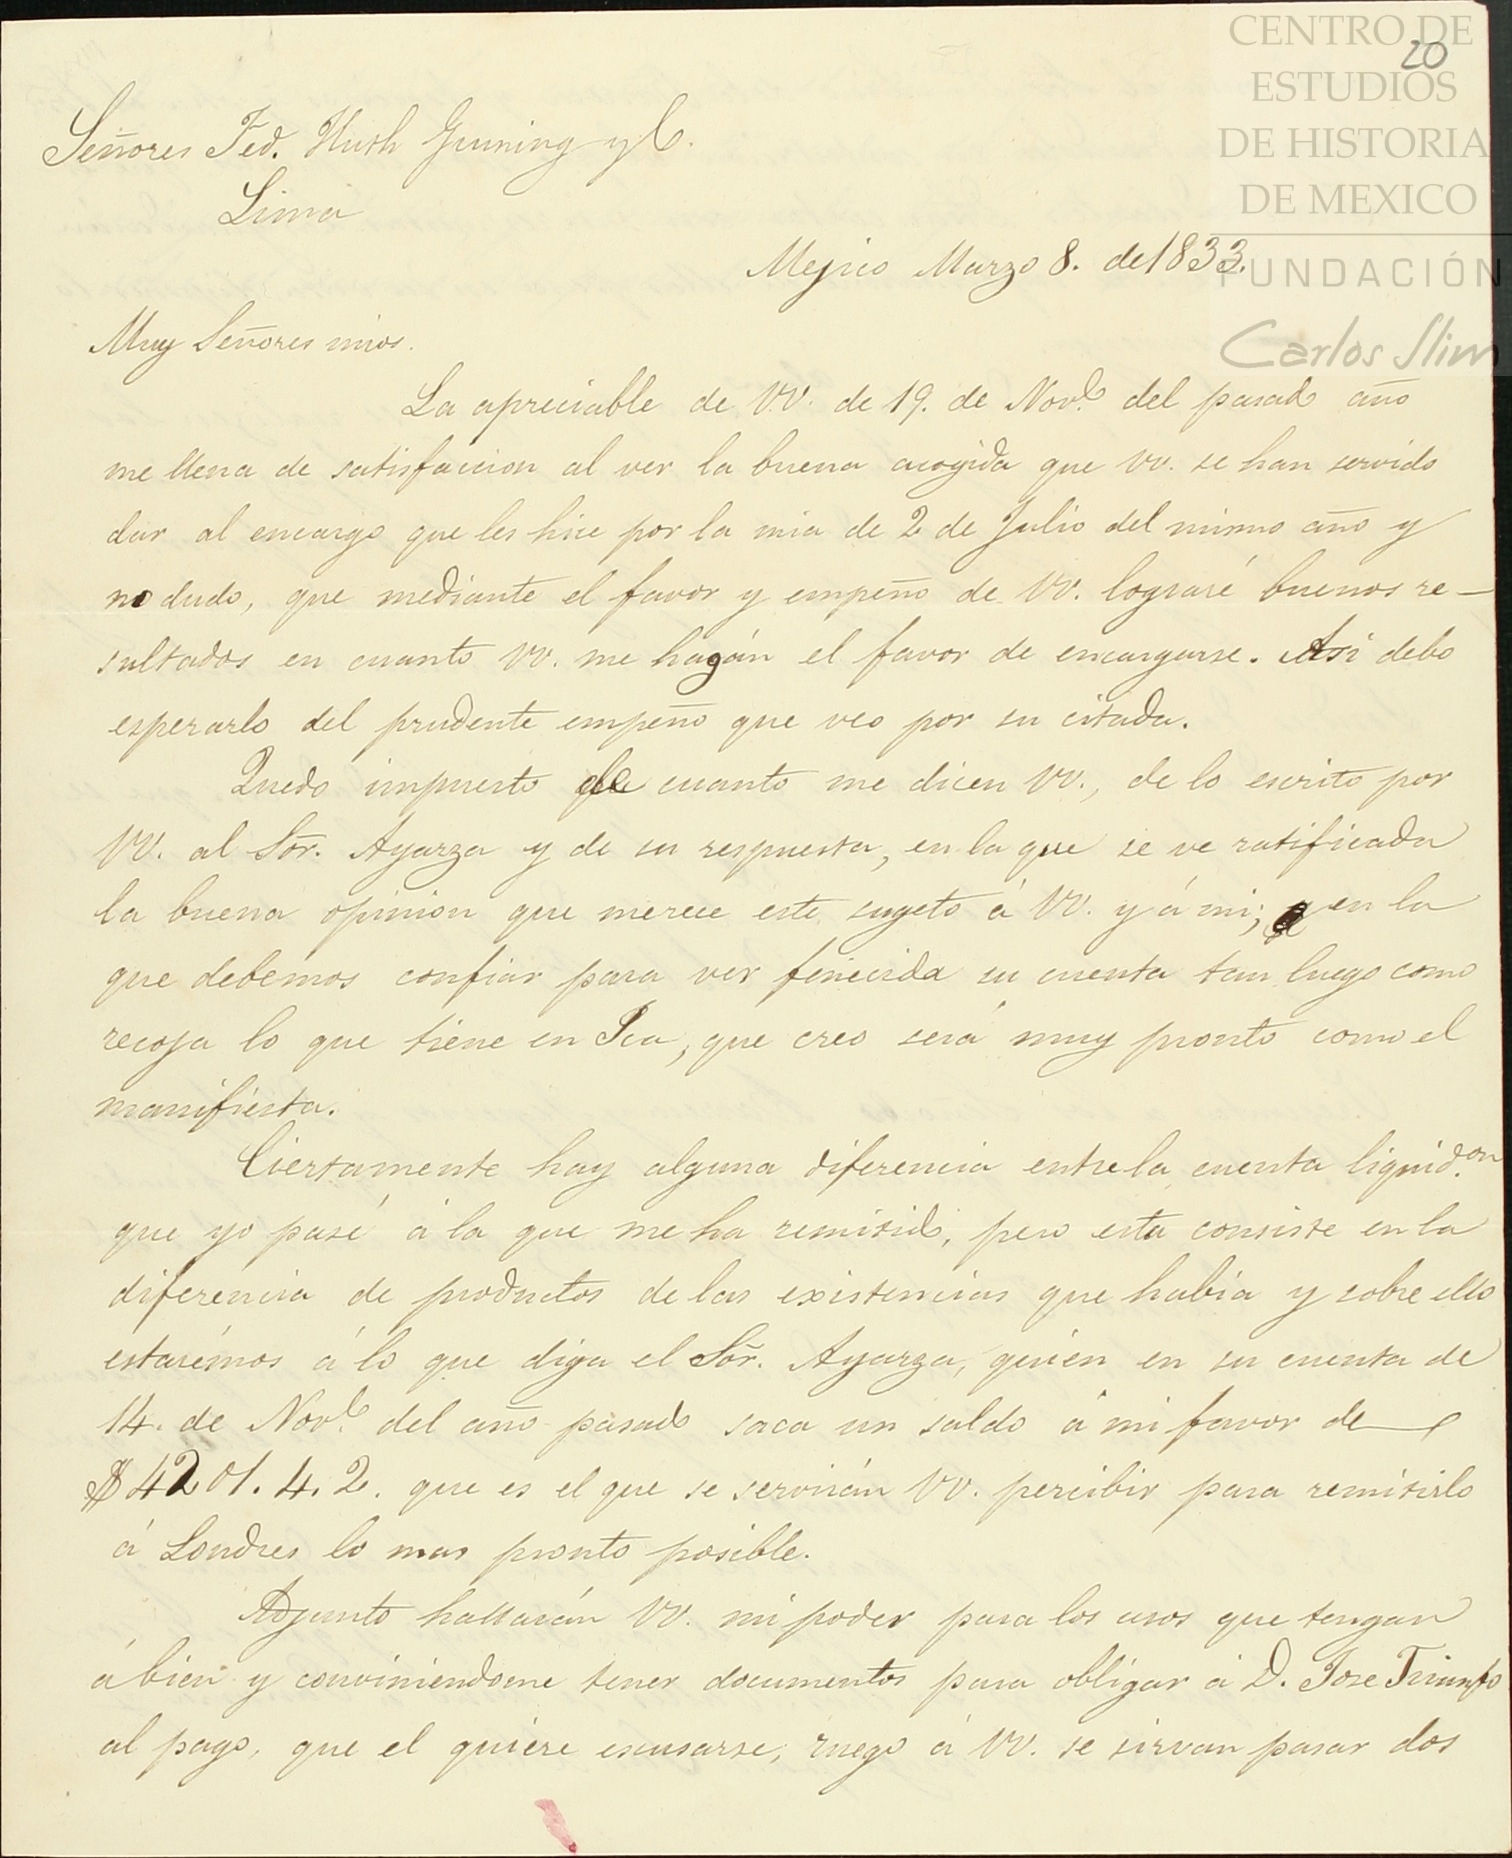 CENTRO DE
ESTUDIOS
DE HISTORIA
DE MEXICO
FUNDACIÓN
Carlos Slim
20
Señores Fed. Huth Gruning y C.
Lima
Mejico Marzo 8. de 1833.
Muy Señores mios.
La apreciable de VV. de 19. de Nove. del pasado año
me llena de satisfaccion al ver la buena acogida que VV. se han servido
dar al encargo que les hice por la mia de 2 de Julio del mismo año y
no dudo, que mediante el favor y empeño de VV. lograré buenos re-
sultados en cuanto VV. me hagán el favor de encargarse. Asi debo
esperarlo del prudente empeño que veo por su citada.
Quedo impuesto de cuanto me dicen VV., de lo escrito por
VV. al Sōr. Ayarza y de su respuesta, en la que se ve ratificada
la buena opinion que merece este sugeto á VV. y á mi; y en la
que debemos confiar para ver fenecida su cuenta tan luego como
recoja lo que tiene en Ica, que creo será muy pronto como el
manifiesta.
Ciertamente hay alguna diferencia entre la cuenta liquid.on
que yo pasé á la que me ha remitido, pero esta consiste en la
diferencia de productos de las existencias que habia y sobre ello
estarémos á lo que diga el Sōr. Ayarza, quien en su cuenta de
14. de Nove. del año pasado saca un saldo á mi favor de
$ 4201.4.2. que es el que se servirán VV. percibir para remitirlo
á Londres lo mas pronto posible.
Adjunto hallarán VV. mi poder para los usos que tengan
á bien y conviniendome tener documentos para obligar á D. Jose Triunfo
al pago, que el quiere escusarse, ruego á VV. se sirvan pasar dos